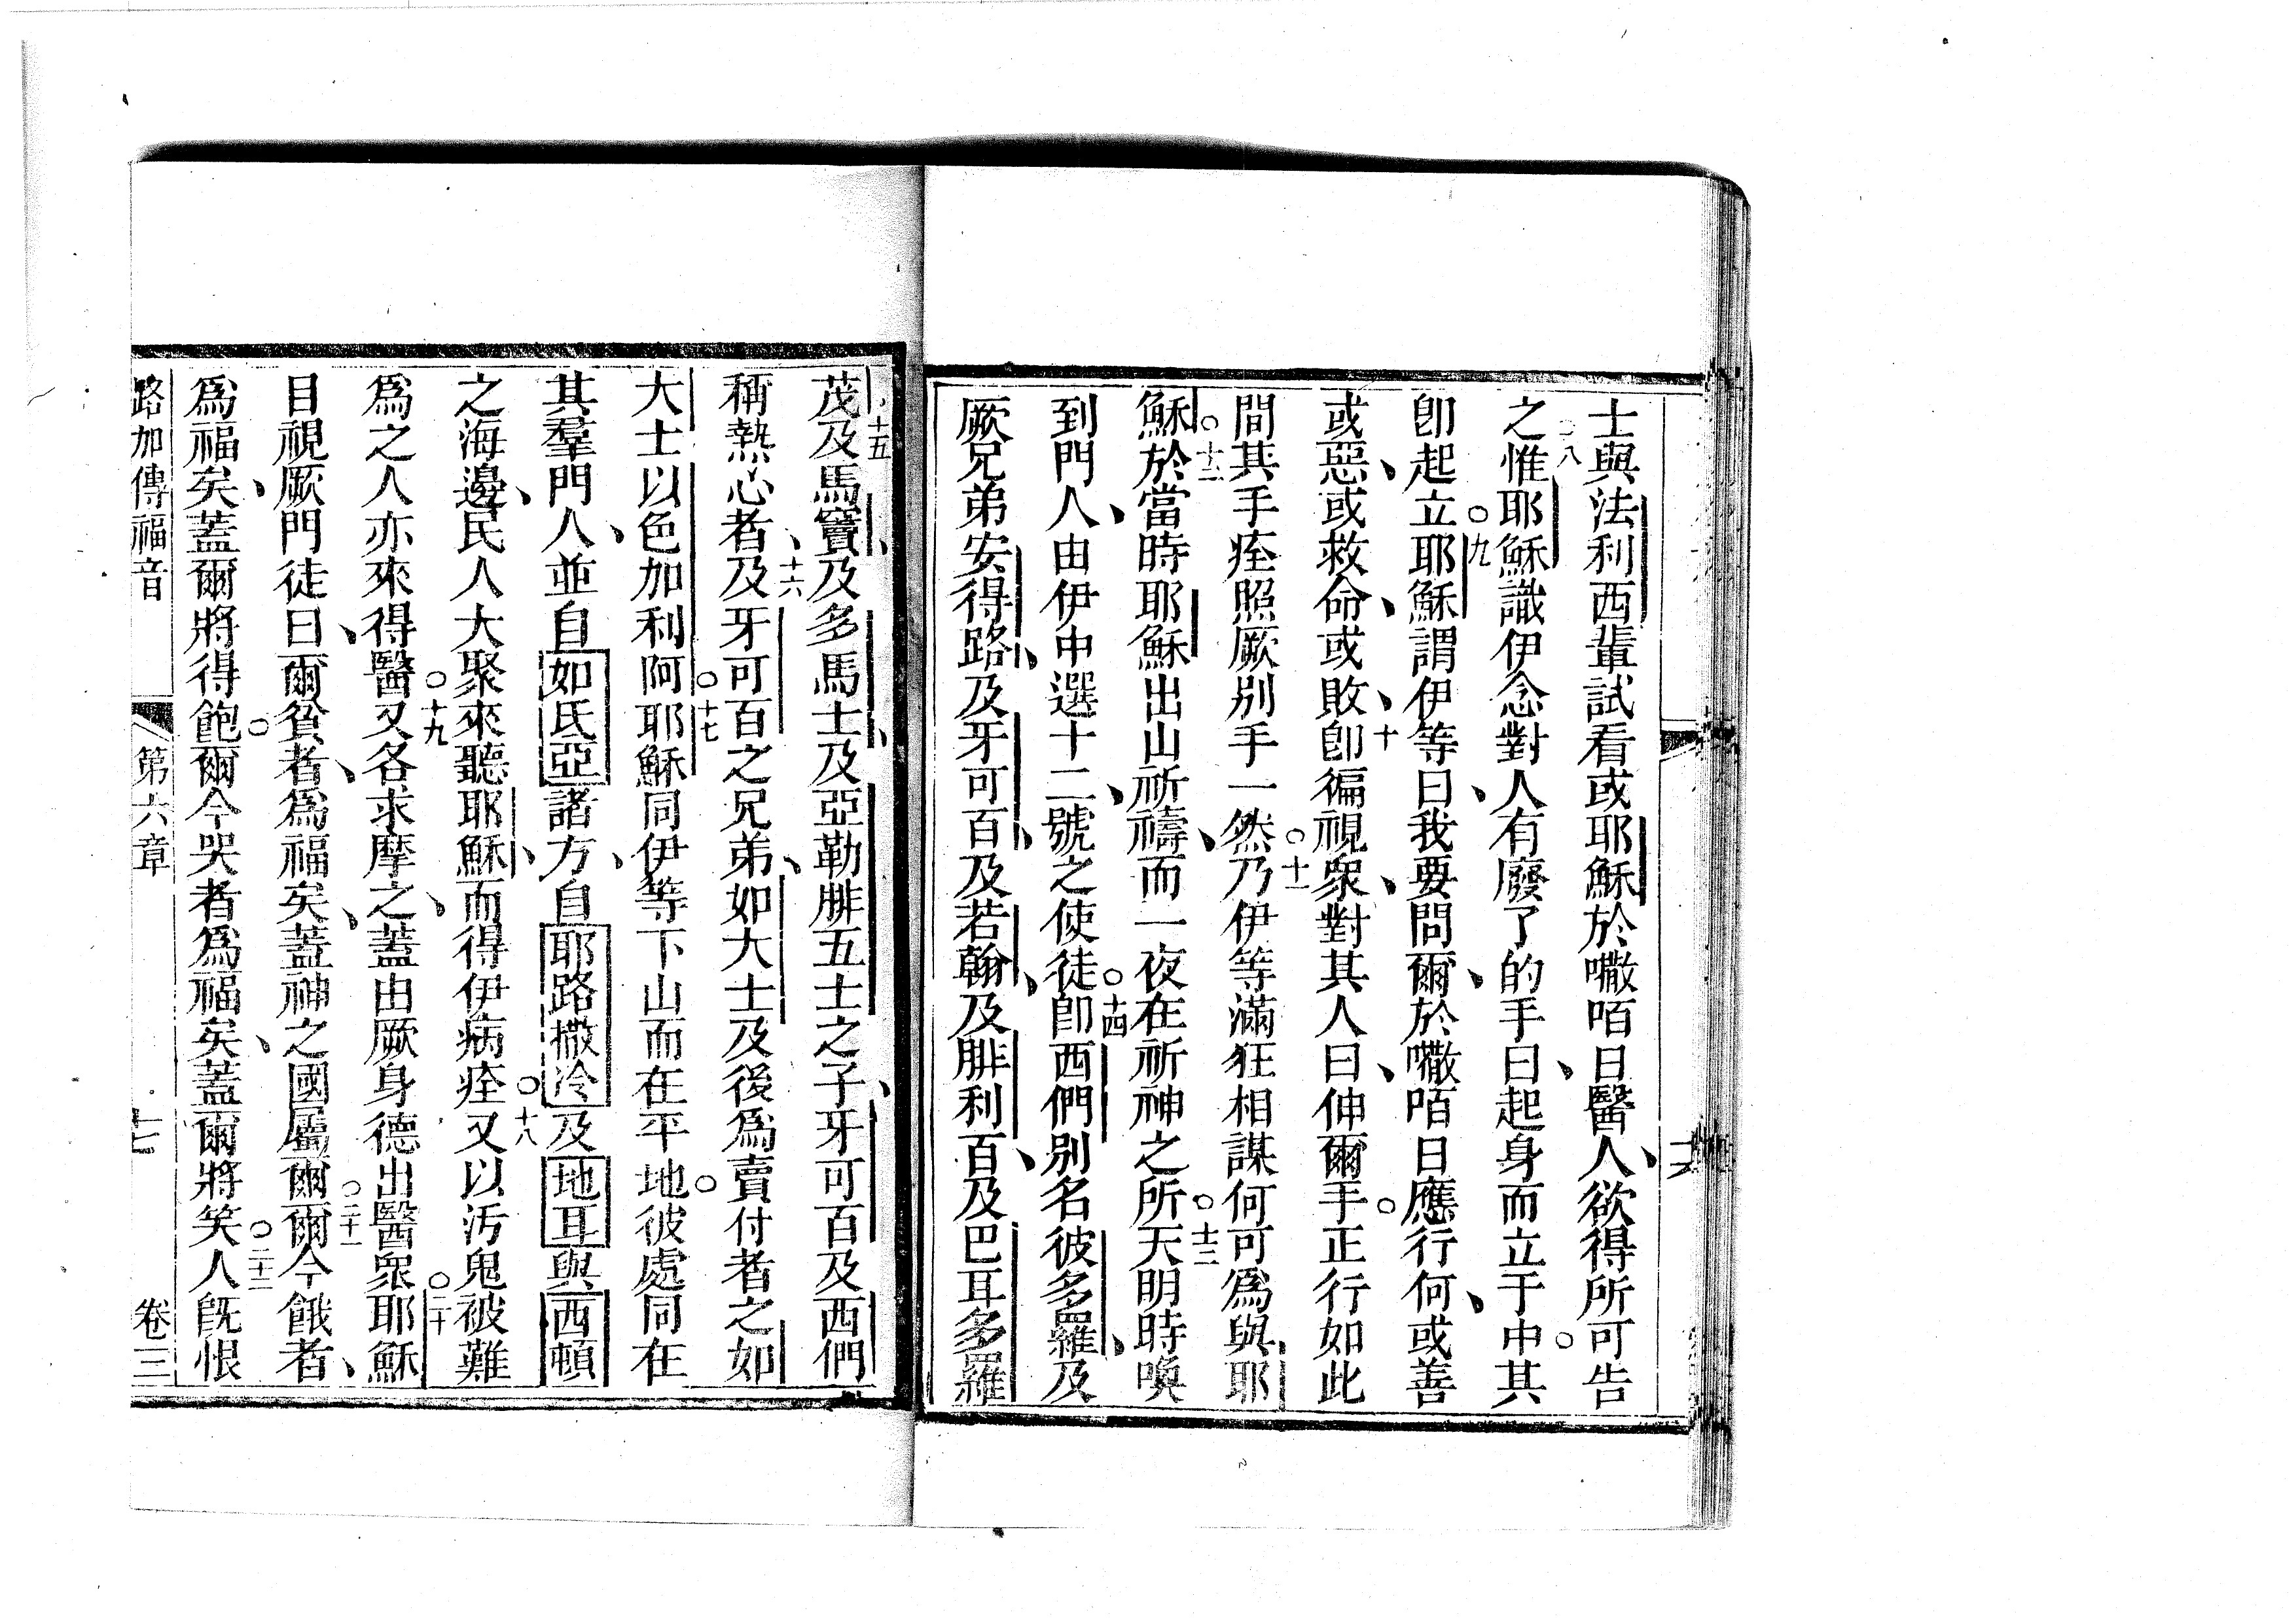 士與法利西輩試看或耶穌於㘔咟日醫人、欲得所可告
之○八惟耶穌識伊念對人有廢了的手曰、起身而立于中。其
卽起立○九耶穌謂伊等曰、我要問爾、於㘔咟日應行何、或善
或惡、或救命、或敗、十卽徧視衆、對其人曰、伸爾手。正行如此
間其手痊照厥别手一然○十一乃伊等滿狂相謀何可爲與耶
穌○十二於當時耶穌出山祈禱、而一夜在祈神之所○十三天明時喚
到門人、由伊中選十二、號之使徒○十四卽西們别名彼多羅、及
厥兄弟安得路、及牙可百、及若翰、及腓利百、及巴耳多羅
茂、十五及馬竇、及多馬士、及亞勒腓五士之子、牙可百及西們
稱熱心者、十六及牙可百之兄弟、如大士及後爲賣付者之如
大士以色加利阿○十七耶穌同伊等下山而在平地。彼處同在
其羣門人、並自如氐亞諸方、自耶路撒冷及地耳與西頓
之海邊、民人大聚來聽耶穌、而得伊病痊○十八又以汚鬼被難
爲之人亦來得醫○十九又各求摩之、蓋由厥身德出醫衆○二十耶穌
目視厥門徒曰、爾貧者、爲福矣、蓋神之國屬爾○二十一爾今餓者、
爲福矣、蓋爾將得飽。爾今哭者爲福矣、蓋爾將笑○二十二人旣恨
路加傳福音 第六章 十七 卷三